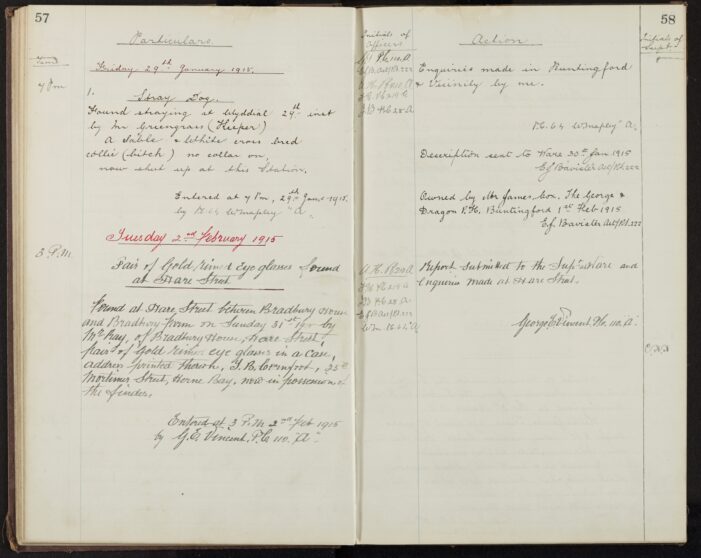 57
Particulars.
Friday 29th January 1915.
7 Pm
1.
Stray Dog.
Found straying at Wyddial 29th inst
by Mr Greengrass (Keeper)
A Sable & White cross bred
collie (bitch) no collar on
now shut up at this Station.
Entered at 7 Pm, 29th Jany 1915.
by P.C. 64 W Mapley "A"
Tuesday 2nd February 1915
3. P.M.
Pair of Gold rimed Eye glasses found
at Hare Street
Found at Hare Street between Bradbury House
and Bradbury Farm on Sunday 31st by
Mr Ray, of Bradbury House, Hare Street,
Pair of Gold rimed eye glasses in a case,
address printed thereon, J. B.
Mortimer Street, Herne Bay. now in possession of
the finder.
Entered at 3 P.M. 2nd Feb 1915
by G. E. Vincent, P.C. 110. "A".
58
Initials of
Officers
Action
Initials of
Supt.
P.C. 110. A
Enquiries made in Buntingford
& Vicinity by me.
P.C. 64 W Mapley "A"
Description sent to Ware 30th Jan 1915
E.J. Bavister Act/Sgt 222
Owned by Mr James Cox. The George &
Dragon P.H. Buntingford 1st Feb 1915
E.J. Bavister Act/Sgt 222
Report submitted to the Supt Ware and
Enquiries made at Hare Street.
George E Vincent. Pc. 110. A.